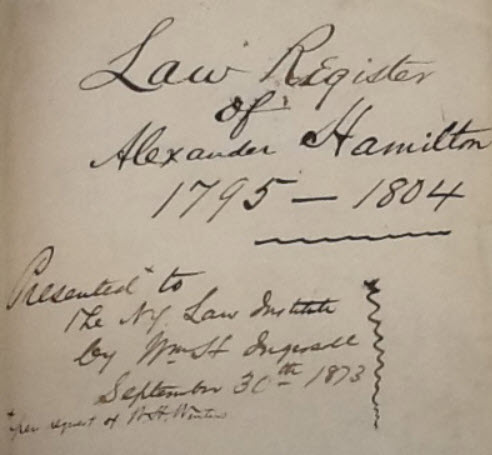 Law Register
of
Alexander Hamilton
1795 — 1804
Presented* to
The NY Law Institute
by Wm H Ingersoll
September 30th 1873
*per request of W.H. Winters